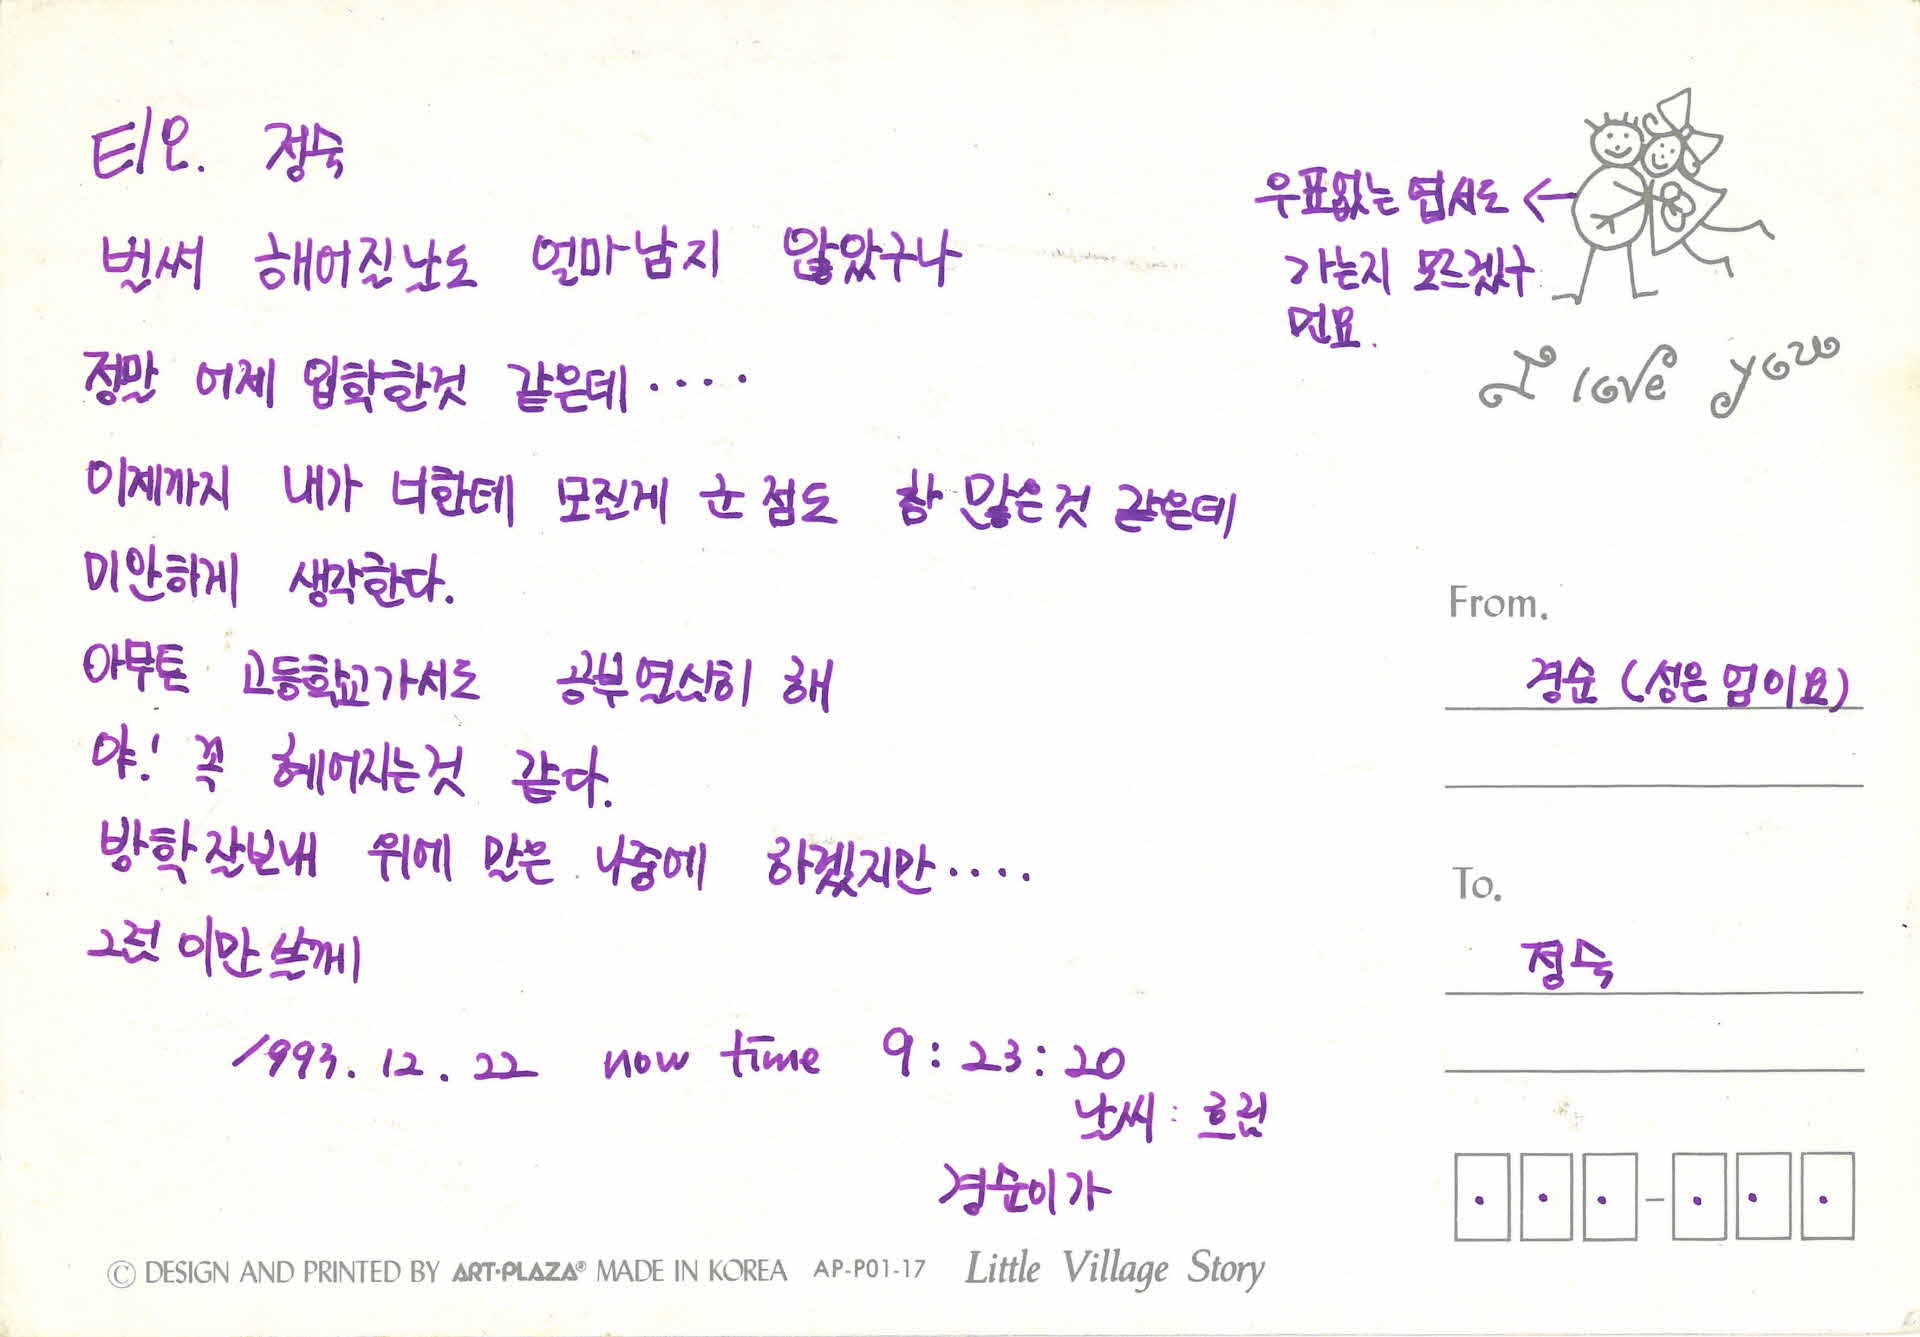 티오. 정숙
벌써 해어질난도 얼마남지 않았구나
정말 어제 입학한것 같은데....
이제까지 내가 너한테 모질게 군점도 참 많은것 같은데
미안하게 생각한다.
아무튼 고등학교가서도 공부열심히 해
야! 꼭 헤어지는것 같다.
방학잘보내 위에 말은 나중에 하겠지만....
그럼 이만쓸께
1993.12.22 now time 9:23:20
날씨: 흐림
경순이가
© DESIGN AND PRINTED BY ART·PLAZA® MADE IN KOREA AP-P01-17 Little Village Story
우표없는 엽서도 ←
가는지 모르겠구
먼요.
I love you
From.
경순 (성은 엄이요)
To.
정숙